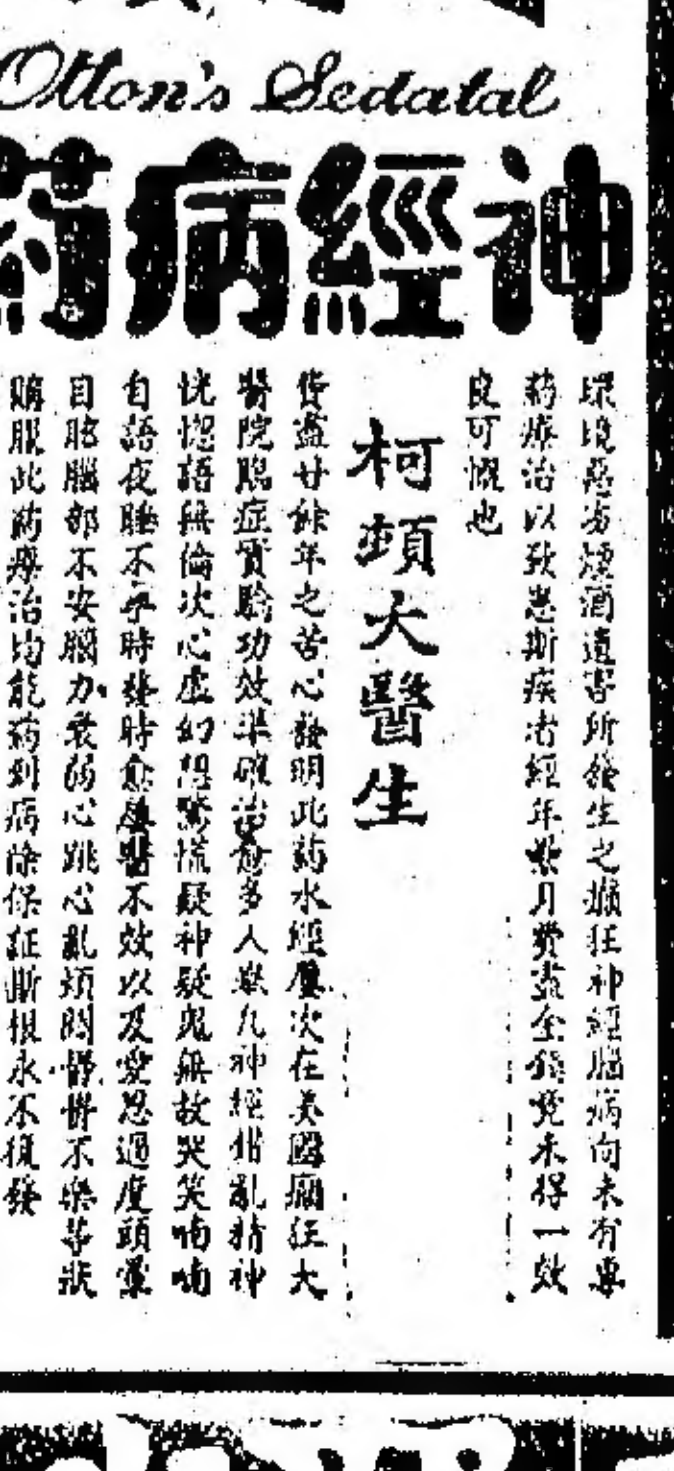 Otton's Sedatal
神經病药
環境惡劣煙酒遺害所發生之癲狂神經腦病向未有專
葯療治以致患斯疾者經年累月費盡金錢竟未得一效
良可慨也
柯頓大醫生
費盡廿餘年之苦心發明此葯水經屢次在美國癲狂大
醫院臨症實驗功效準確治愈多人凡神經錯亂精神
恍惚語無倫次心虛幻想驚慌疑神疑鬼無故哭笑喃喃
自語夜睡不寧時發時愈屢醫不效以及憂思過度頭暈
目眩腦部不安腦力衰弱心跳心亂煩悶不樂等狀
購服此葯療治均能葯到病除保証斷根永不復發